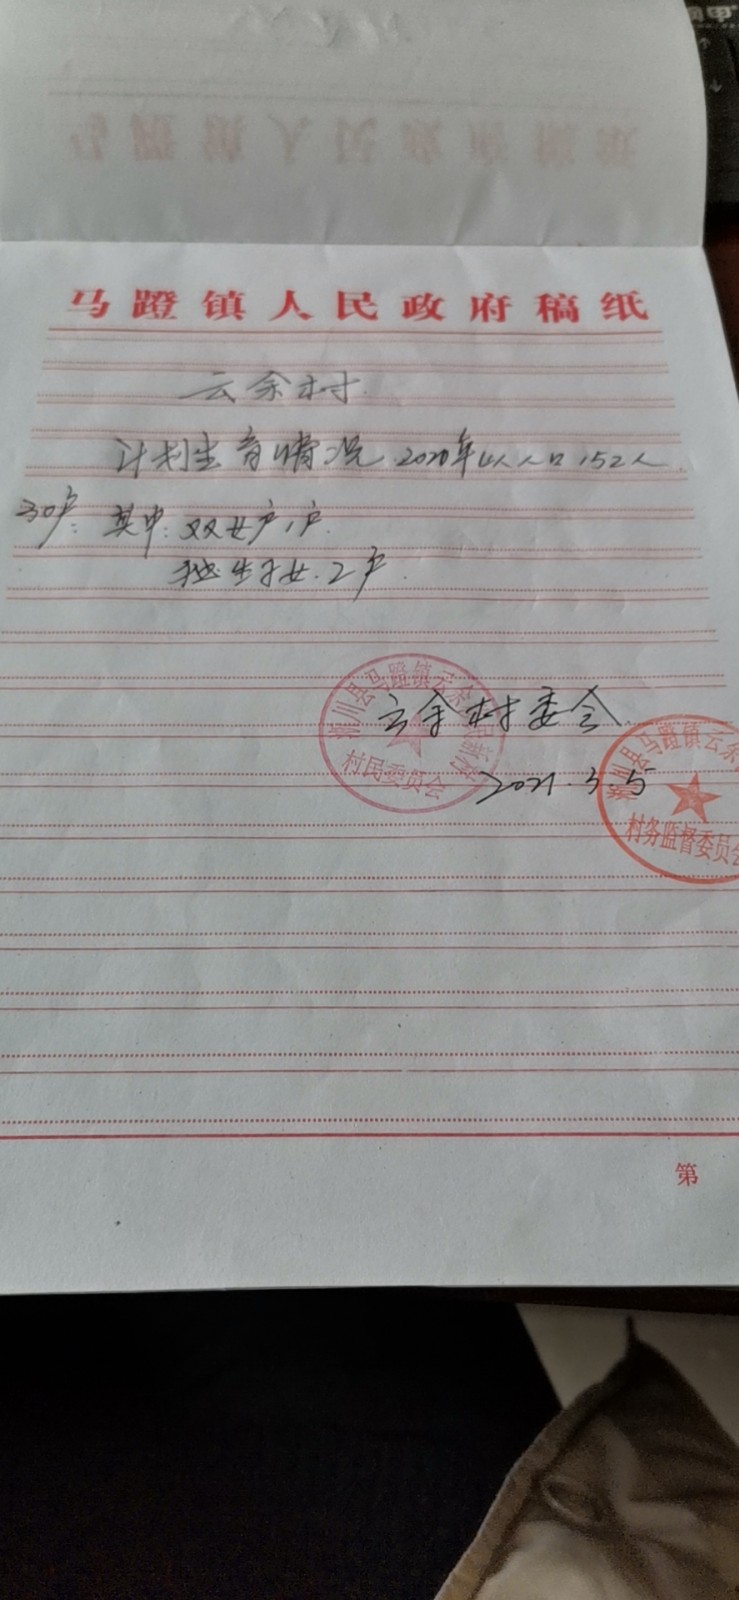 马蹬镇人民政府稿纸
云余村
计划生育情况.2020年 人口152人
30户: 其中:双女户1户.
独生子女.2户.
云余村委会
2021.3.5
淅川县马蹬镇云余
村民委员会
淅川县马蹬镇云余
村务监督委员会
第